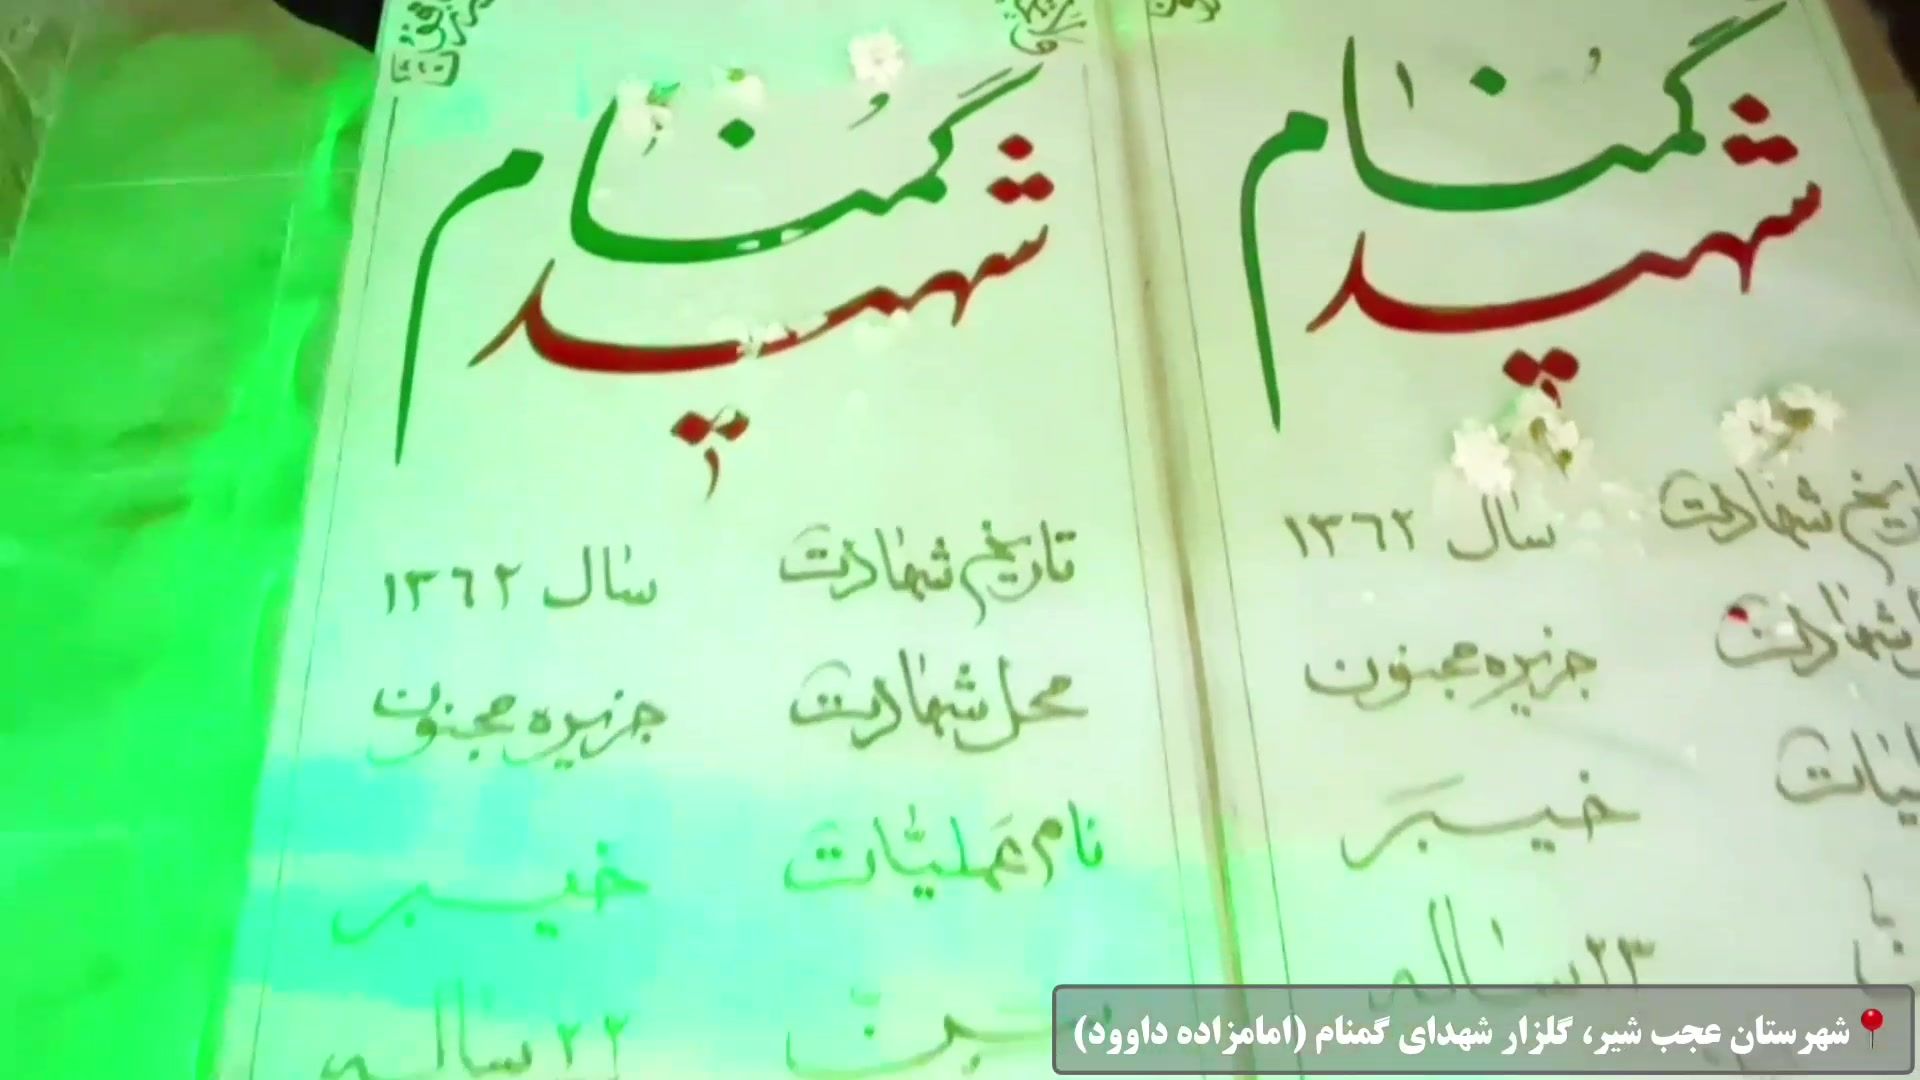 شهید گمنام
تاریخ شهادت سال ۱۳۶۲
محل شهادت جزیره مجنون
نام عملیات خیبر
سن ۲۲ ساله
شهید گمنام
تاریخ شهادت سال ۱۳۶۲
شهادت جزیره مجنون
خیبر
۲۳ ساله
شهرستان عجب شیر، گلزار شهدای گمنام (امامزاده داوود)